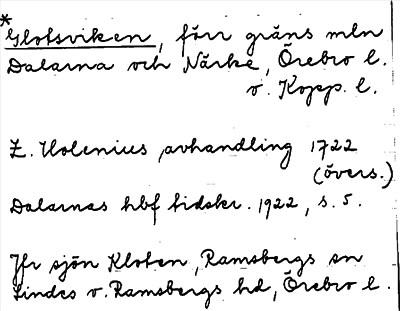 *Glotsviken, förr gräns mln
Dalarna och Närke, Örebro l.
o. Kopp. l.
Z. Holenius avhandling 1722
(övers.)
Dalarnas hbf tidskr. 1922, s. 5.
Jfr sjön Kloten, Ramsbergs sn
Lindes o. Ramsbergs hd, Örebro l.